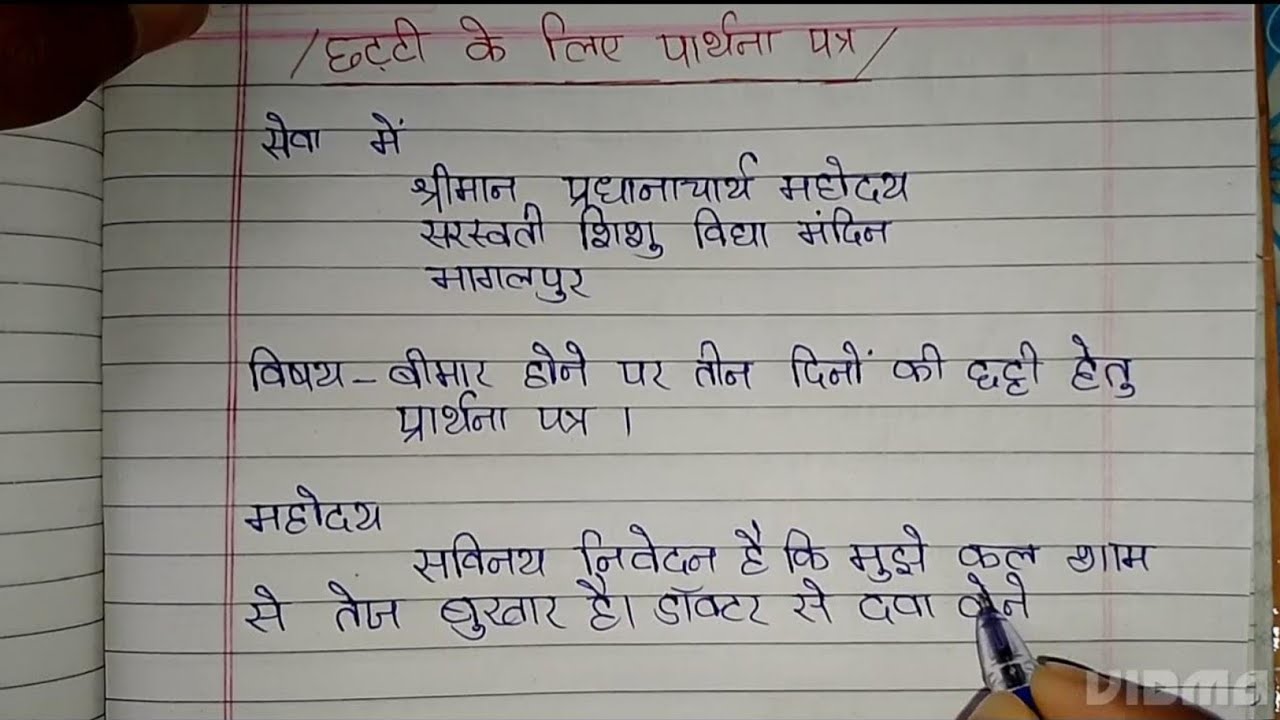 /छट्टी के लिए पार्थना पत्र/
सेवा में
श्रीमान प्रधानाचार्य महोदय
सरस्वती शिशु विद्या मंदिन
भागलपुर
विषय - बीमार होने पर तीन दिनों की छट्टी हेतु
प्रार्थना पत्र ।
महोदय
सविनय निवेदन है कि मुझे कल शाम
से तेज बुखार है। डॉक्टर से दवा लेने
VIDMA